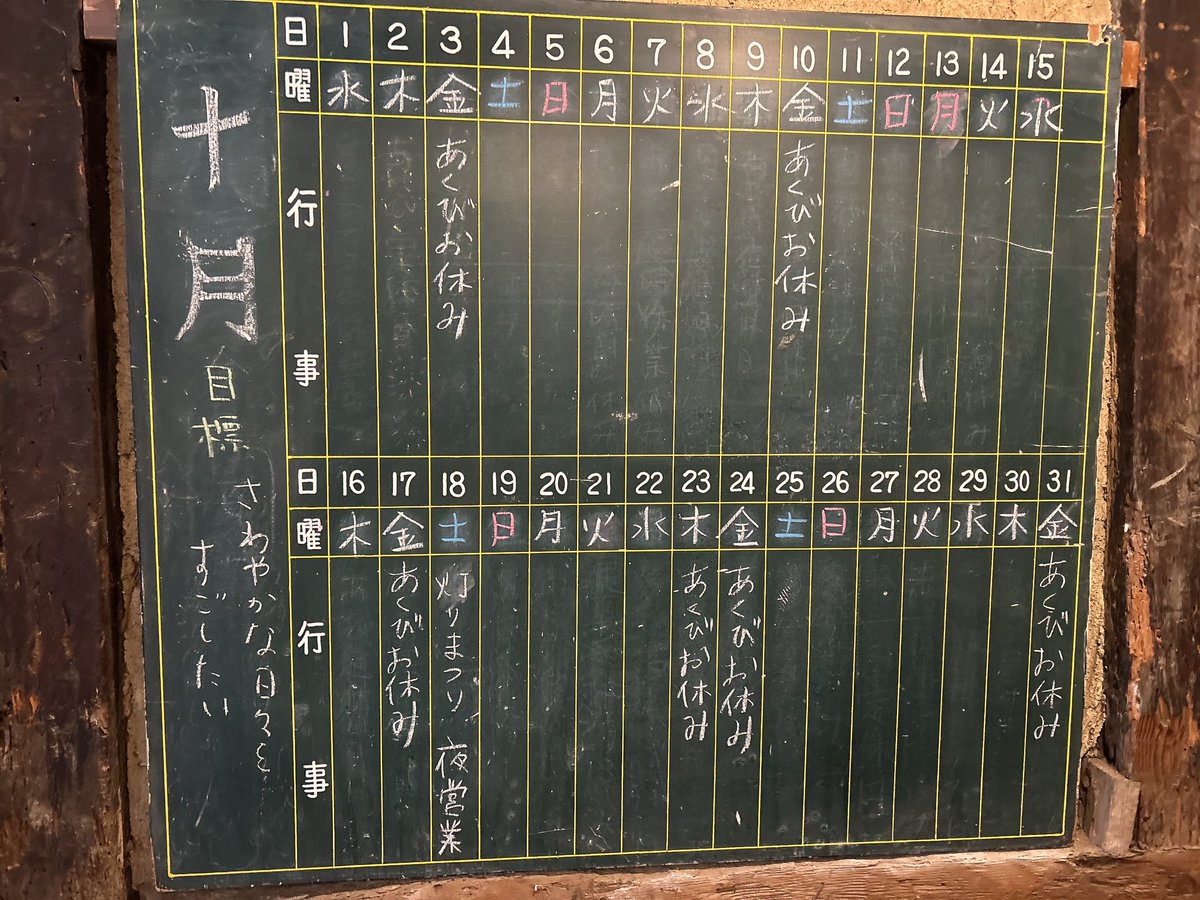 十月
目標
さわやかな日々を
すごしたい
日 1 2 3 4 5 6 7 8 9 10 11 12 13 14 15
曜 水 木 金 土 日 月 火 水 木 金 土 日 月 火 水
行事
あくびお休み
あくびお休み
日 16 17 18 19 20 21 22 23 24 25 26 27 28 29 30 31
曜 木 金 土 日 月 火 水 木 金 土 日 月 火 水 木 金
行事
あくびお休み
灯りまつり 夜営業
あくびお休み
あくびお休み
あくびお休み